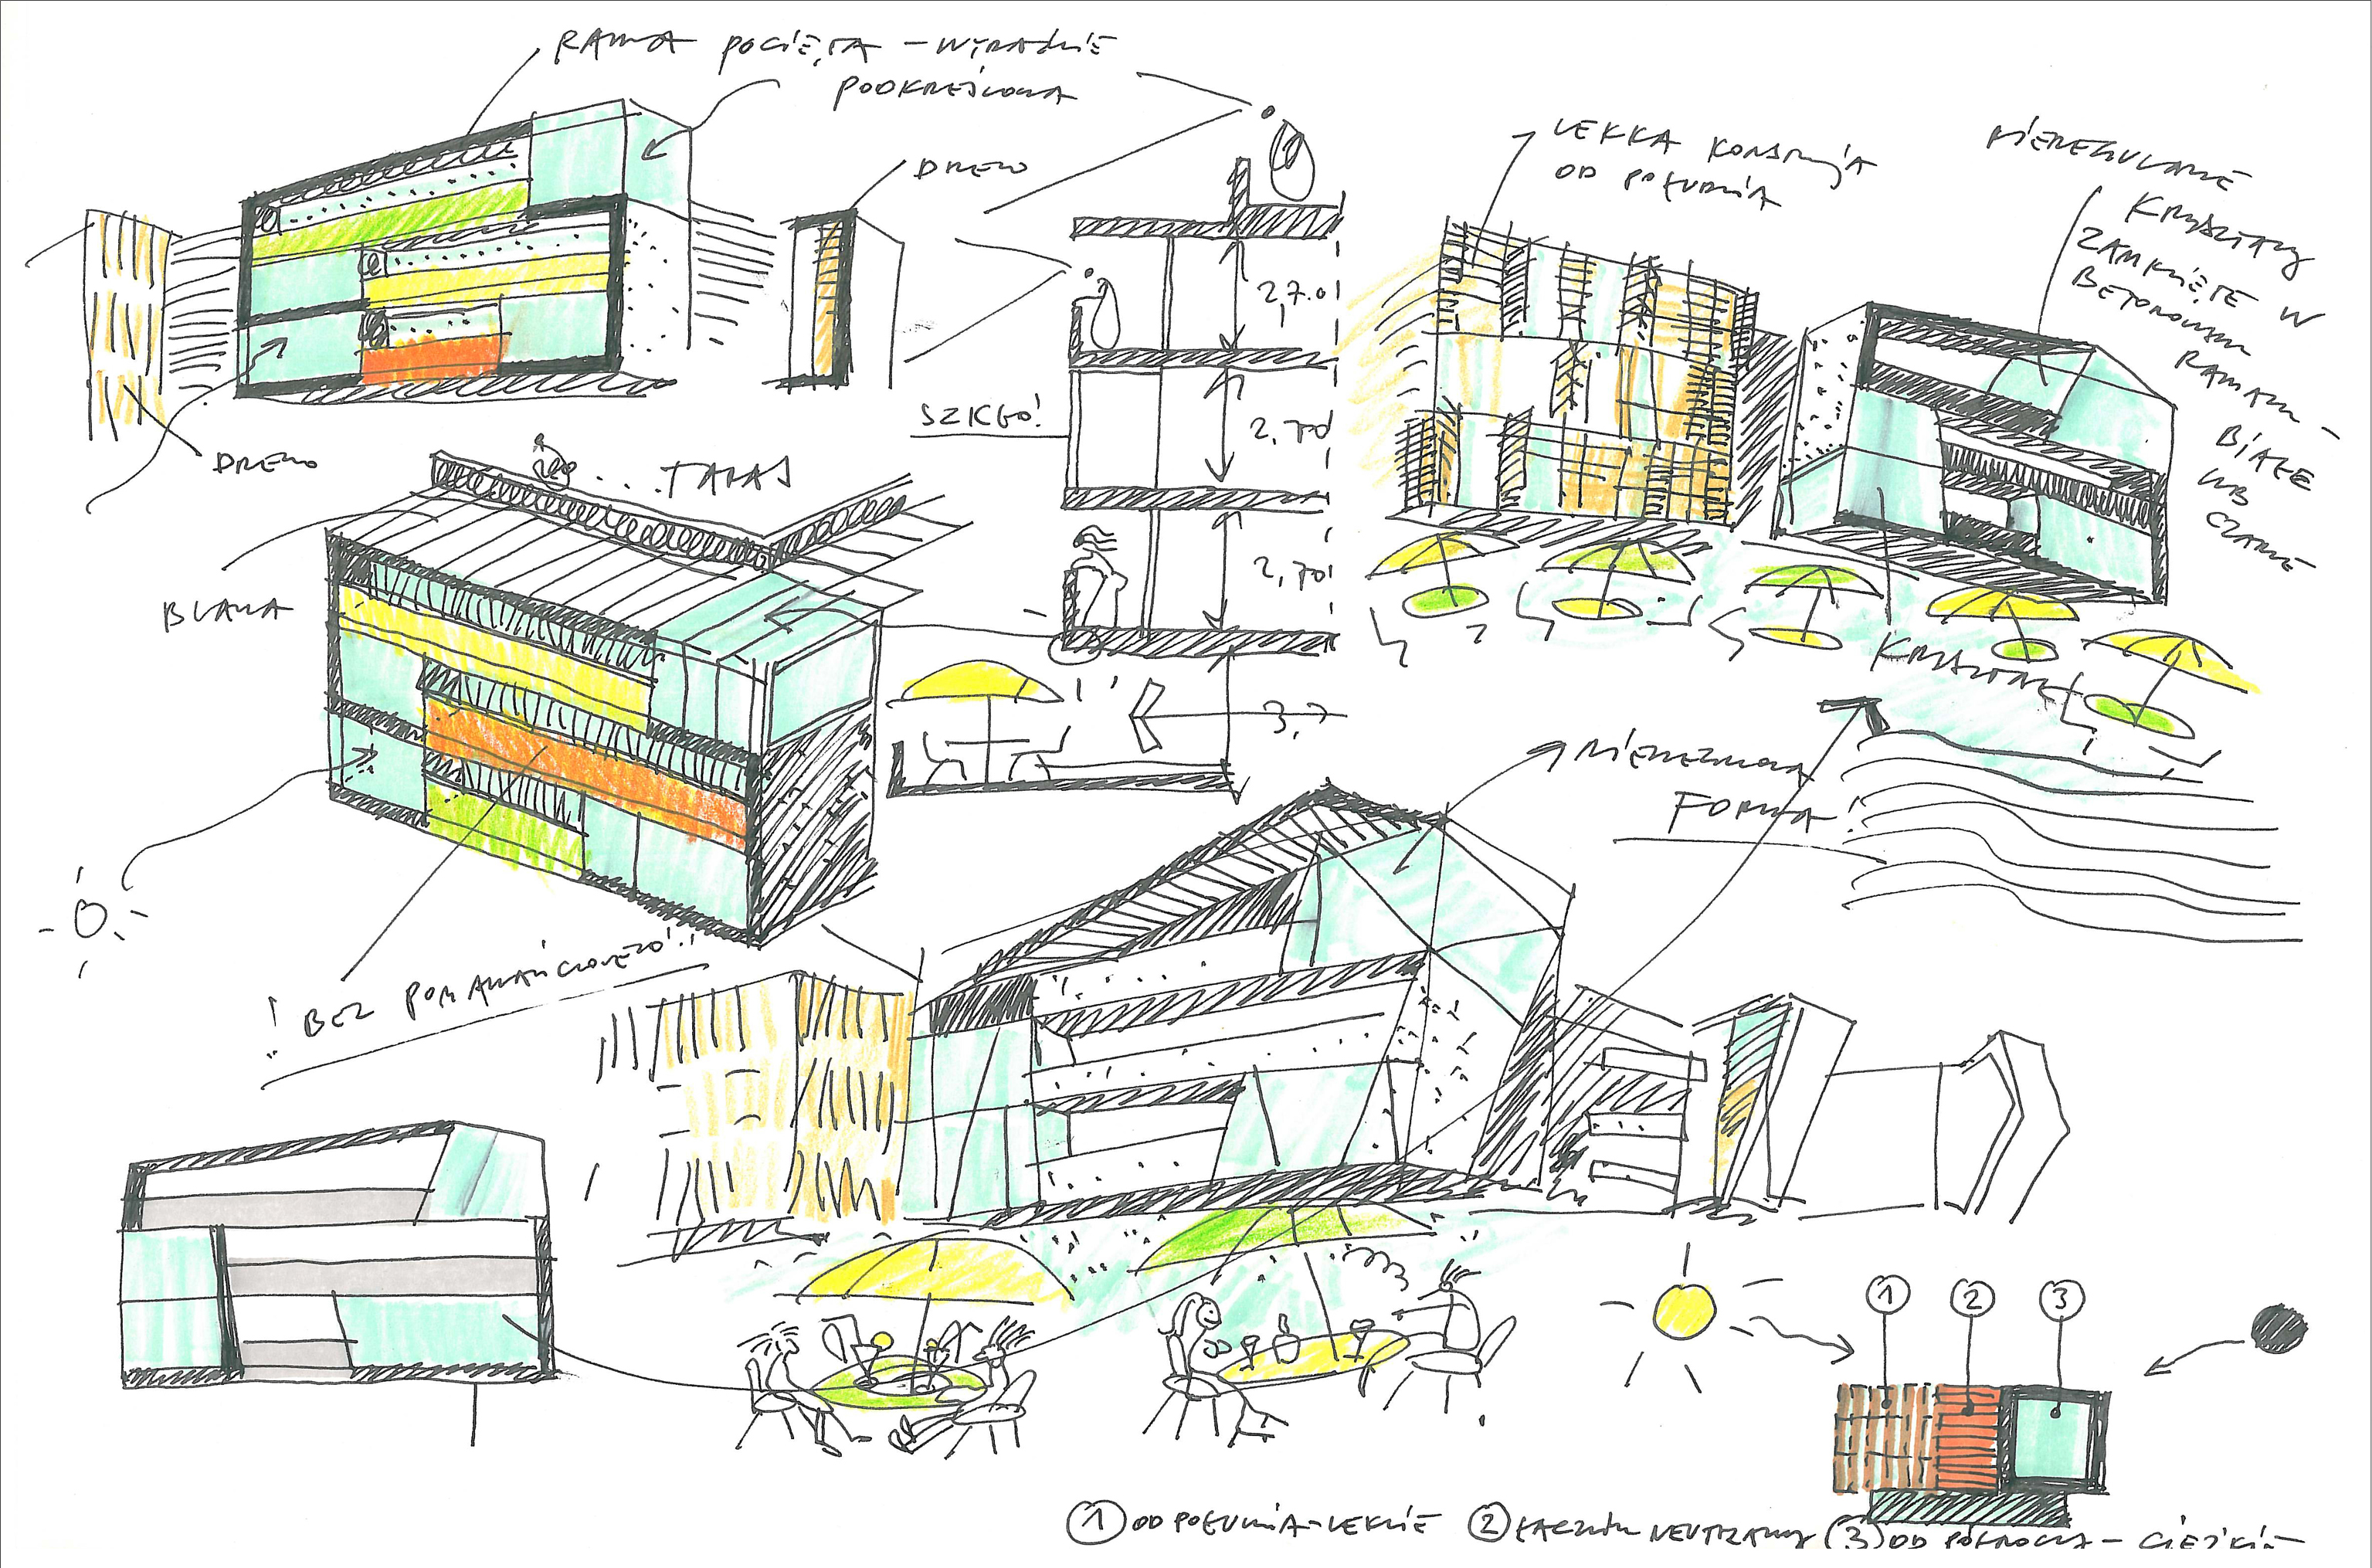 RAMA POCIĘTA – WYRAŹNIE
PODKREŚLONA
DREWNO
DREWNO
LEKKA KONSTRUKCJA
OD POŁUDNIA
NIEREGULARNE
KRYSZTAŁY
ZAMKNIĘTE W
BETONOWYCH
RAMACH –
BIAŁE
LUB
CZARNE
2,70
SZKŁO!
2,70
2,70
TARAS
BLACHA
KRYSZTAŁ
3,
NIEREGULARNA
FORMA!
! BEZ POMARAŃCZOWEGO!!
1
2
3
① OD POŁUDNIA – LEKKIE ② ŁĄCZNIK NEUTRALNY ③ OD PÓŁNOCY – CIĘŻKIE